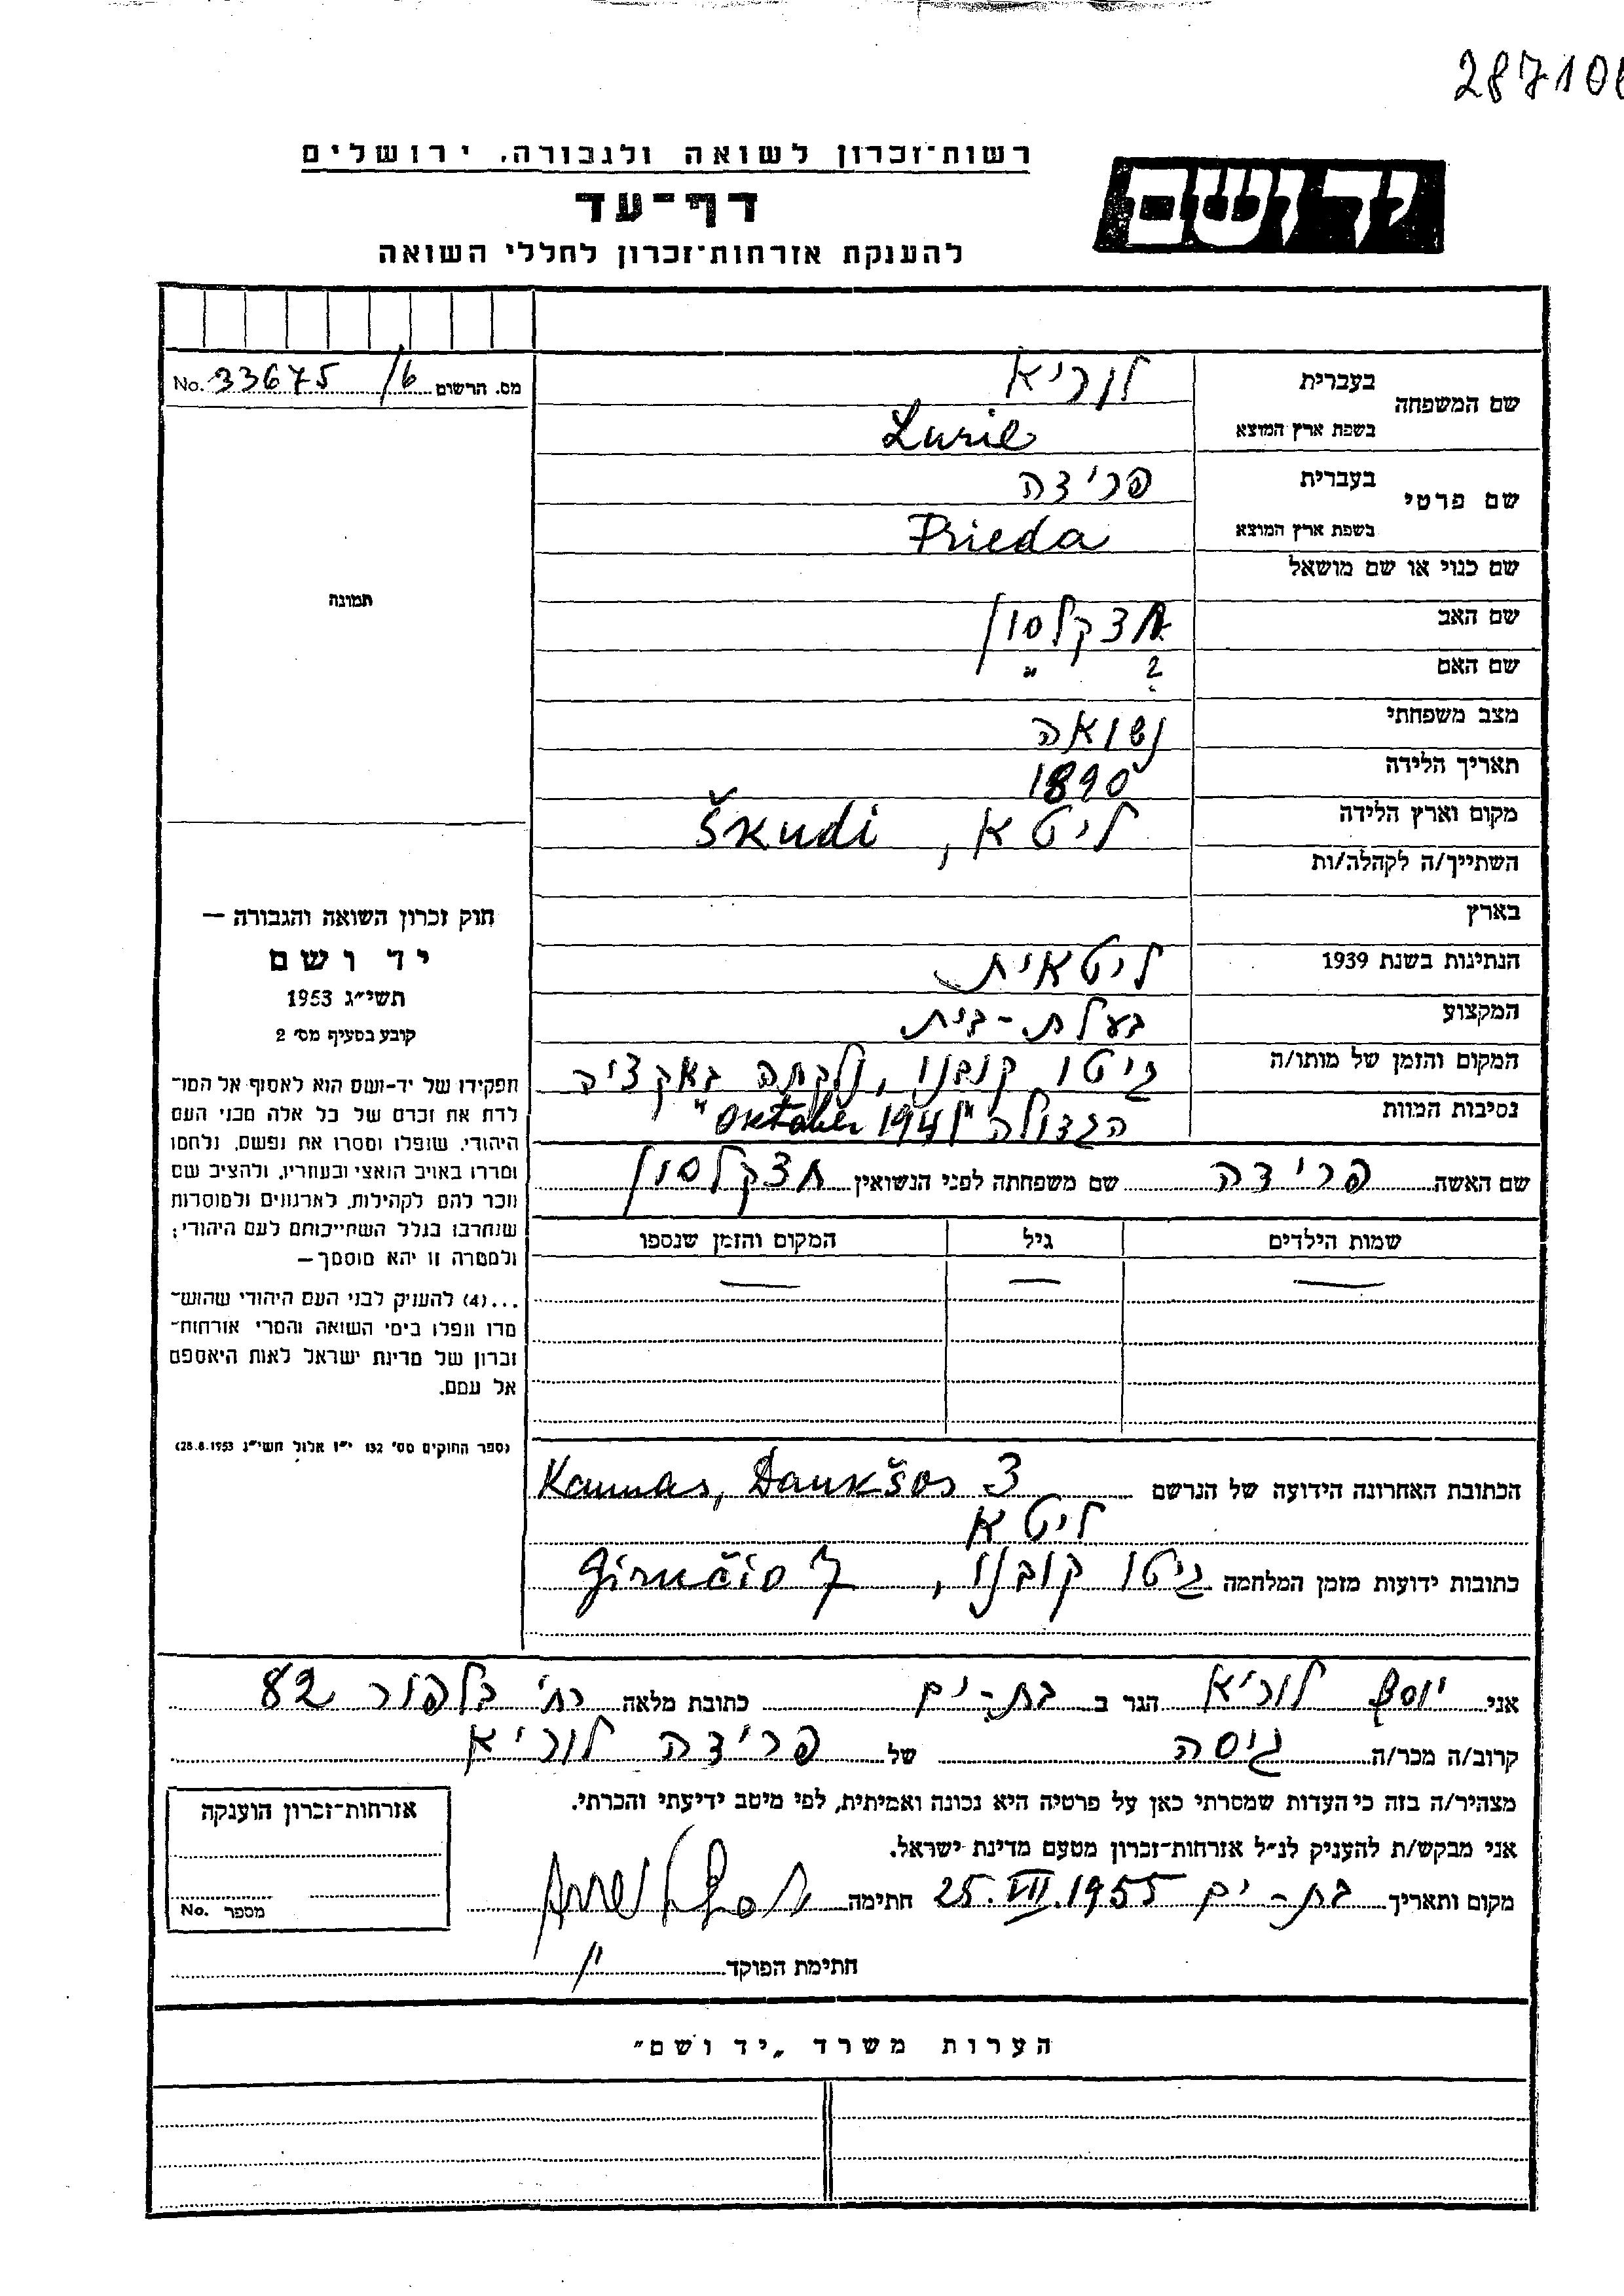 287108
רשות־זכרון לשואה ולגבורה, ירושלים
יד ושם
דף־עד
להענקת אזרחות־זכרון לחללי השואה
מס. הרשום 33675/6 No.
שם המשפחה
בעברית לוריא
בשפת ארץ המוצא Lurie
שם פרטי
בעברית פרידה
בשפת ארץ המוצא Frieda
שם כנוי או שם מושאל
שם האב
שם האם ? "
מצב משפחתי נשואה
תאריך הלידה 1890
מקום וארץ הלידה ליטא, Škudi
השתייך/ה לקהלה/ות
בארץ
הנתינות בשנת 1939 ליטאית
המקצוע בעלת-בית
המקום והזמן של מותו/ה גיטו קובנו, נלקחה באקציה
נסיבות המוות הגדולה "Oktober 1941"
שם האשה פרידה שם משפחתה לפני הנשואין
שמות הילדים גיל המקום והזמן שנספו
— — —
הכתובת האחרונה הידועה של הנרשם Kaunas, Daukšos 3
ליטא
כתובות ידועות מזמן המלחמה גיטו קובנו, Giručio 7
תמונה
חוק זכרון השואה והגבורה —
יד ושם
תשי״ג 1953
קובע בסעיף מס׳ 2
תפקידו של יד-ושם הוא לאסוף אל המו־
לדת את זכרם של כל אלה מבני העם
היהודי, שנפלו ומסרו את נפשם, נלחמו
ומרדו באויב הנאצי ובעוזריו, ולהציב שם
וזכר להם לקהילות, לארגונים ולמוסדות
שנחרבו בגלל השתייכותם לעם היהודי;
ולמטרה זו יהא מוסמך—
...(4) להעניק לבני העם היהודי שהוש־
מדו ונפלו בימי השואה והמרי אזרחות־
זכרון של מדינת ישראל לאות היאספם
אל עמם.
(ספר החוקים מס׳ 132 י״ז אלול תשי״ג 28.8.1953)
אני יוסף לוריא הגר ב בת-ים כתובת מלאה רח׳ בלפור 82
קרוב/ה מכר/ה גיסה של פרידה לוריא
מצהיר/ה בזה כי העדות שמסרתי כאן על פרטיה היא נכונה ואמיתית, לפי מיטב ידיעתי והכרתי.
אני מבקש/ת להעניק לנ״ל אזרחות־זכרון מטעם מדינת ישראל.
מקום ותאריך בת-ים 25.VII.1955 חתימה
חתימת הפוקד
אזרחות־זכרון הוענקה
מספר No.
הערות משרד „יד ושם"